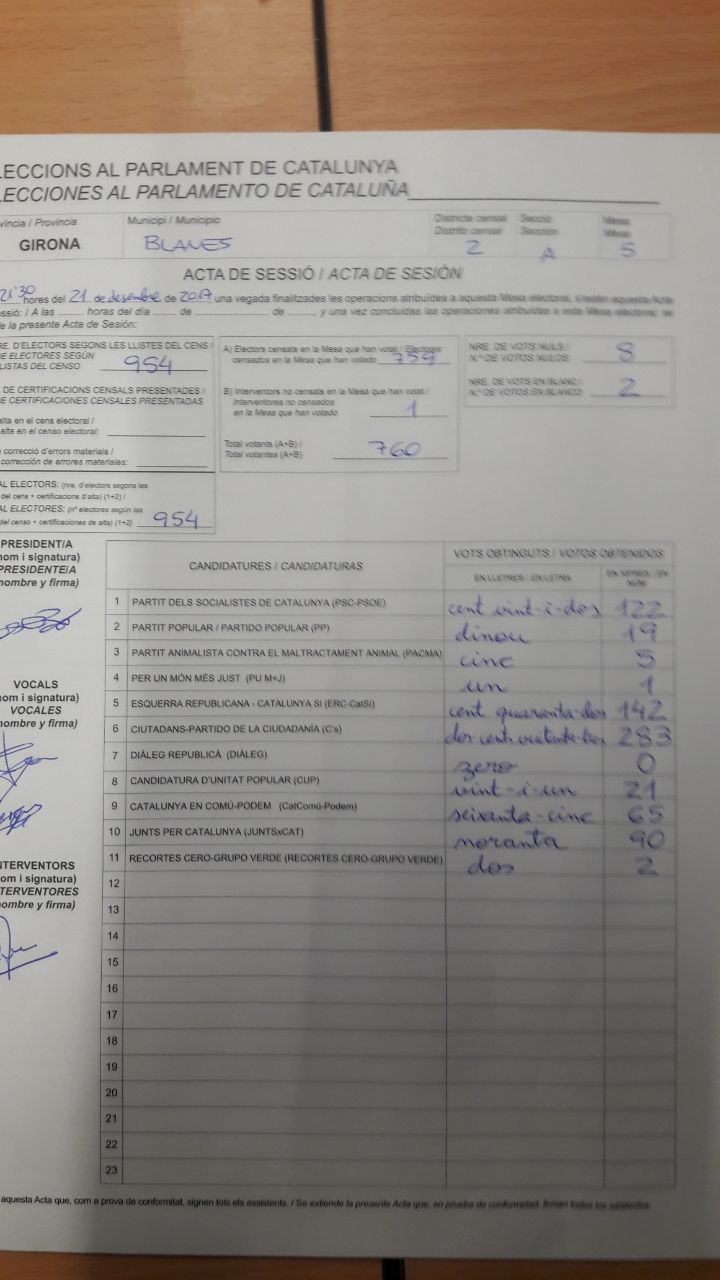 LECCIONS AL PARLAMENT DE CATALUNYA
LECCIONES AL PARLAMENTO DE CATALUÑA
víncia / Provincia Municipi / Municipio Districte censal Secció Mesa
Distrito censal Sección Mesa
GIRONA BLANES 2 A S
ACTA DE SESSIÓ / ACTA DE SESIÓN
21'30 hores del 21 de desembre de 2017 una vegada finalitzades les operacions atribuïdes a aquesta Mesa electoral,
ssió: / A las hores del día de de , y una vez concluidas las operaciones atribuidas a esta Mesa electoral, se
e la presente Acta de Sesión:
RE. D'ELECTORS SEGONS LES LLISTES DEL CENS /
E ELECTORES SEGÚN
LISTAS DEL CENSO 954
DE CERTIFICACIONS CENSALS PRESENTADES /
E CERTIFICACIONES CENSALES PRESENTADAS
alta en el cens electoral /
alta en el censo electoral:
correcció d'errors materials /
corrección de errores materiales:
AL ELECTORS: (nre. d'electors segons les
del cens + certificacions d'alta) (1+2) /
AL ELECTORES: (nº electores según las
del censo + certificaciones de alta) (1+2) 954
A) Electors censats en la Mesa que han votat / Electores
censados en la Mesa que han votado 759
B) Interventors no censats en la Mesa que han votat /
Interventores no censados
en la Mesa que han votado 1
Total votants (A+B) /
Total votantes (A+B) 760
NRE. DE VOTS NULS /
N.º DE VOTOS NULOS 8
NRE. DE VOTS EN BLANC /
N.º DE VOTOS EN BLANCO 2
PRESIDENT/A
nom i signatura)
PRESIDENTE/A
nombre y firma)
VOCALS
nom i signatura)
VOCALES
nombre y firma)
NTERVENTORS
om i signatura)
TERVENTORES
ombre y firma)
CANDIDATURES / CANDIDATURAS VOTS OBTINGUTS / VOTOS OBTENIDOS
EN LLETRES / EN LETRA EN XIFRES / EN
NÚM
1 PARTIT DELS SOCIALISTES DE CATALUNYA (PSC-PSOE) cent vint-i-dos 122
2 PARTIT POPULAR / PARTIDO POPULAR (PP) dinou 19
3 PARTIT ANIMALISTA CONTRA EL MALTRACTAMENT ANIMAL (PACMA) cinc 5
4 PER UN MÓN MÉS JUST (PU M+J) un 1
5 ESQUERRA REPUBLICANA - CATALUNYA SI (ERC-CatSí) cent quaranta-dos 142
6 CIUTADANS-PARTIDO DE LA CIUDADANÍA (C's) dos cents vuitanta-tres 283
7 DIÀLEG REPUBLICÀ (DIÀLEG) zero 0
8 CANDIDATURA D'UNITAT POPULAR (CUP) vint-i-un 21
9 CATALUNYA EN COMÚ-PODEM (CatComú-Podem) seixanta-cinc 65
10 JUNTS PER CATALUNYA (JUNTSxCAT) noranta 90
11 RECORTES CERO-GRUPO VERDE (RECORTES CERO-GRUPO VERDE) dos 2
12
13
14
15
16
17
18
19
20
21
22
23
aquesta Acta que, com a prova de conformitat, signen tots els assistents. / Se extiende la presente Acta que, en prueba de conformidad, firman todos los asistentes.